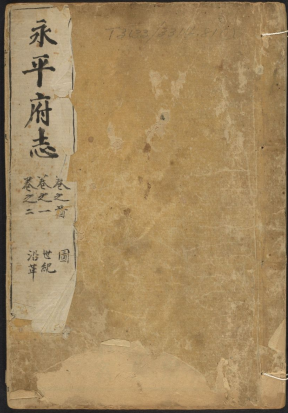 永平府志
卷之首 圖
卷之一 世紀
卷之二 沿革